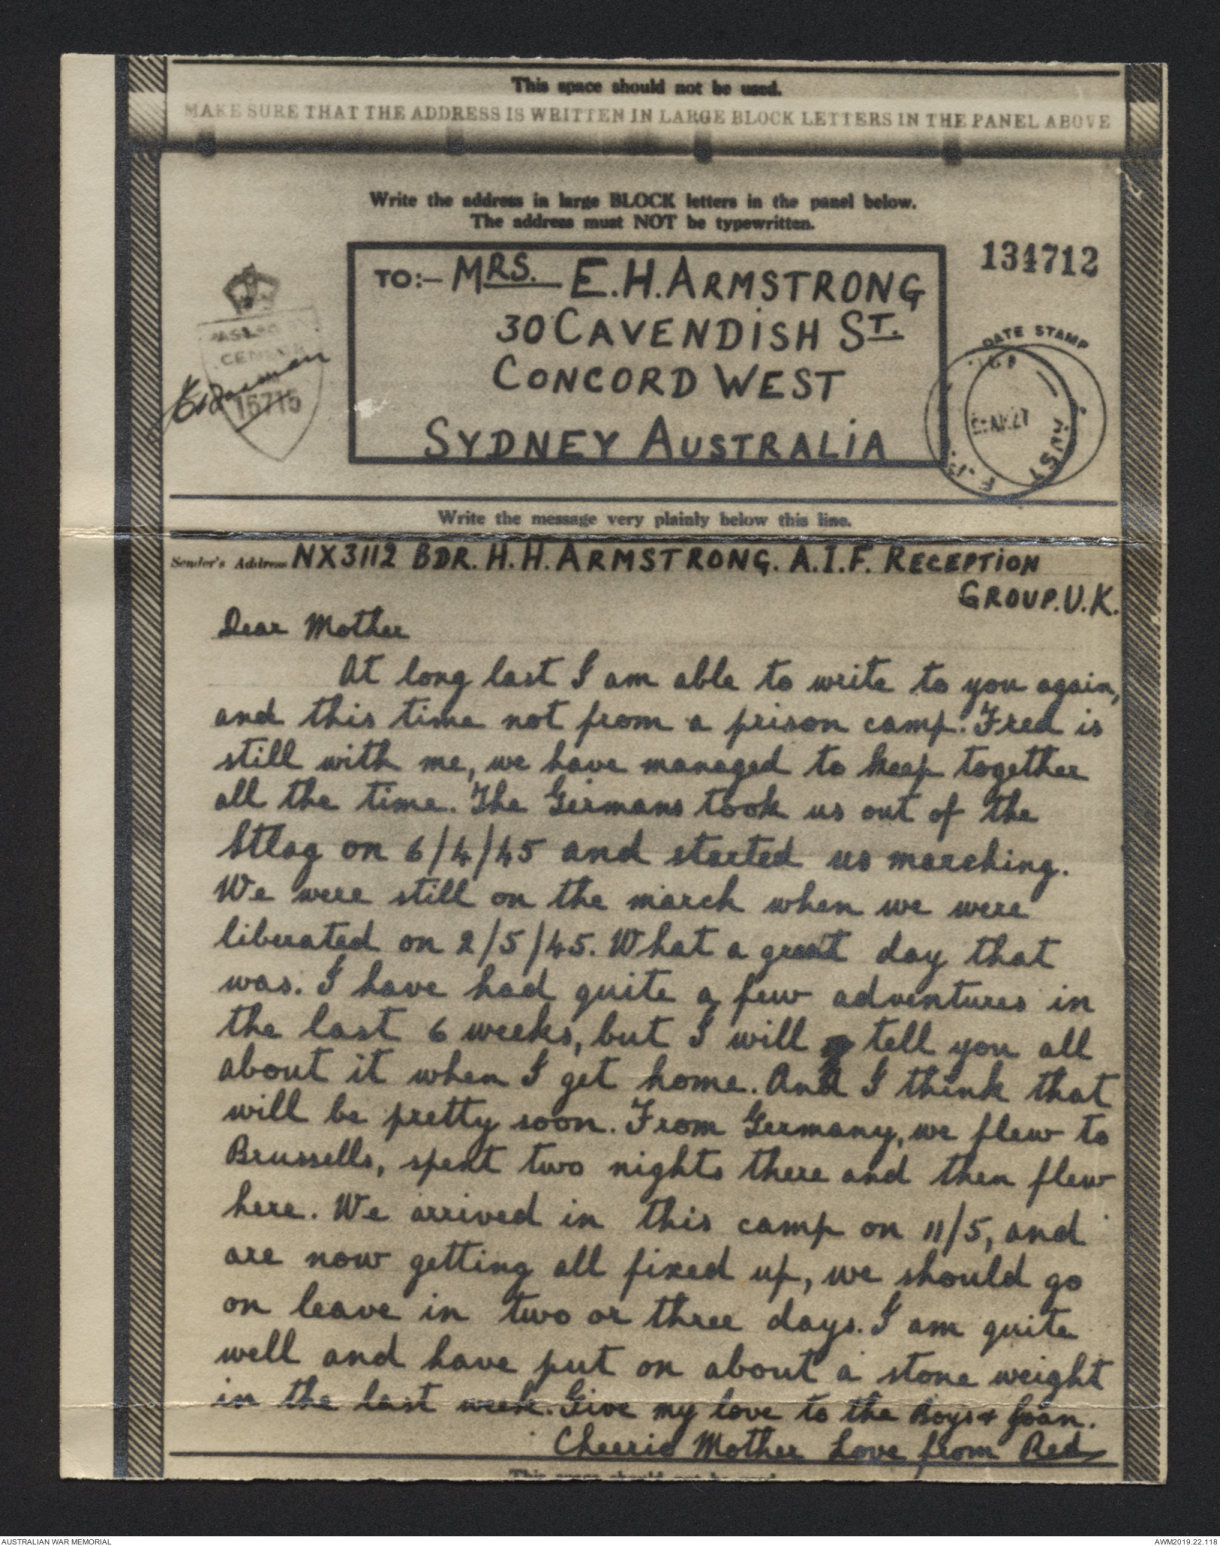 This space should not be used.
MAKE SURE THAT THE ADDRESS IS WRITTEN IN LARGE BLOCK LETTERS IN THE PANEL ABOVE
Write the address in large BLOCK letters in the panel below.
The address must NOT be typewritten.
134712
TO:- MRS. E.H.ARMSTRONG
30 CAVENDISH ST.
CONCORD WEST
SYDNEY AUSTRALIA
PASSED BY
CENSOR
15715
DATE STAMP
AUST
F.P.
Write the message very plainly below this line.
Sender's Address NX3112 BDR. H.H.ARMSTRONG. A.I.F. RECEPTION
GROUP.U.K.
Dear Mother
At long last I am able to write to you again,
and this time not from a prison camp. Fred is
still with me, we have managed to keep together
all the time. The Germans took us out of the
Stlag on 6/4/45 and started us marching.
We were still on the march when we were
liberated on 2/5/45. What a great day that
was. I have had quite a few adventures in
the last 6 weeks, but I will tell you all
about it when I get home. And I think that
will be pretty soon. From Germany, we flew to
Brussells, spent two nights there and then flew
here. We arrived in this camp on 11/5, and
are now getting all fixed up, we should go
on leave in two or three days. I am quite
well and have put on about a stone weight
in the last week. Give my love to the Boys & Joan.
Cheerio Mother Love from Red
This space should not be used
AUSTRALIAN WAR MEMORIAL
AWM2019.22.118